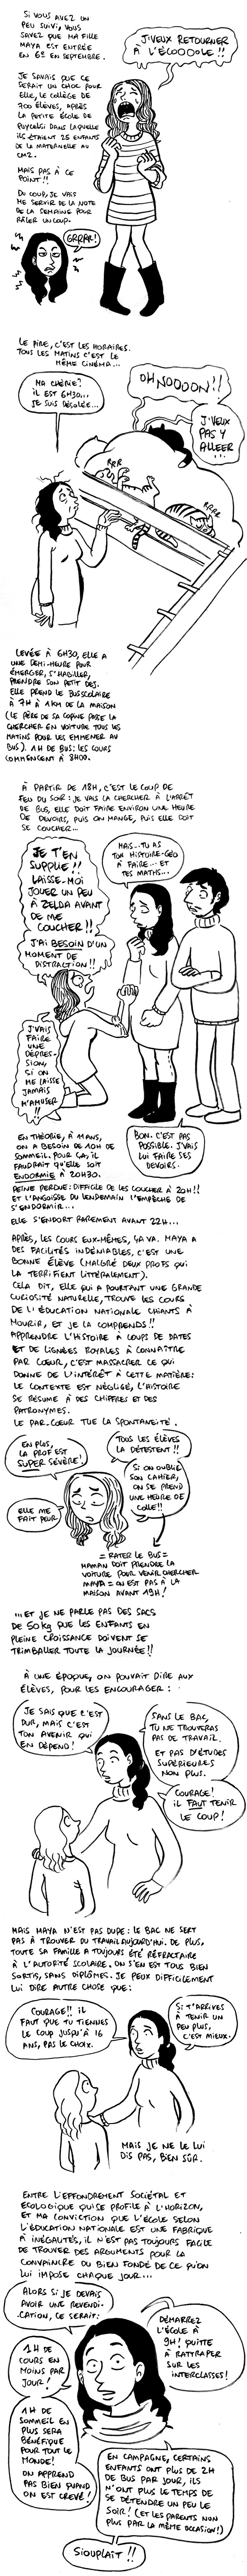 SI VOUS AVEZ UN
PEU SUIVI, VOUS
SAVEZ QUE MA FILLE
MAYA EST ENTRÉE
EN 6E EN SEPTEMBRE.
J'VEUX RETOURNER
À L'ÉCOOOOLE !!
JE SAVAIS QUE CE
SERAIT UN CHOC POUR
ELLE, LE COLLÈGE DE
700 ÉLÈVES, APRÈS
LA PETITE ÉCOLE DE
PUYCELSI DANS LAQUELLE
ILS ÉTAIENT 25 ENFANTS
DE LA MATERNELLE AU
CM2.
MAIS PAS À CE
POINT !!
DU COUP, JE VAIS
ME SERVIR DE LA NOTE
DE LA SEMAINE POUR
RÂLER UN COUP.
GRRRR!
LE PIRE, C'EST LES HORAIRES.
TOUS LES MATINS C'EST LE
MÊME CINÉMA...
MA CHÉRIE?
IL EST 6H30...
JE SUIS DÉSOLÉE...
OH NOOOON!!
J'VEUX
PAS Y
ALLEER
!!!
RRR
RRRR
LEVÉE À 6H30, ELLE A
UNE DEMI-HEURE POUR
ÉMERGER, S'HABILLER,
PRENDRE SON PETIT DEJ.
ELLE PREND LE BUS SCOLAIRE
À 7H À 1KM DE LA MAISON
(LE PÈRE DE SA COPINE PASSE LA
CHERCHER EN VOITURE TOUS LES
MATINS POUR LES EMMENER AU
BUS). 1H DE BUS: LES COURS
COMMENCENT À 8H00.
À PARTIR DE 18H, C'EST LE COUP DE
FEU DU SOIR: JE VAIS LA CHERCHER À L'ARRÊT
DE BUS, ELLE DOIT FAIRE ENVIRON UNE HEURE
DE DEVOIRS, PUIS ON MANGE, PUIS ELLE DOIT
SE COUCHER...
JE T'EN
SUPPLIE !!
LAISSE-MOI
JOUER UN PEU
À ZELDA AVANT
DE ME
COUCHER !!
J'AI BESOIN D'UN
MOMENT DE
DISTRACTION !!
MAIS.. TU AS
TON HISTOIRE-GÉO
À FAIRE... ET
TES MATHS...
J'VAIS
FAIRE
UNE
DÉPRES-
SION,
SI ON
ME LAISSE
JAMAIS
M'AMUSER
!!
BON. C'EST PAS
POSSIBLE. J'VAIS
LUI FAIRE SES
DEVOIRS.
EN THÉORIE, À 11 ANS,
ON A BESOIN DE 10H DE
SOMMEIL. POUR ÇA, IL
FAUDRAIT QU'ELLE SOIT
ENDORMIE À 20H30.
PEINE PERDUE: DIFFICILE DE LES COUCHER À 20H !!
ET L'ANGOISSE DU LENDEMAIN L'EMPÊCHE DE
S'ENDORMIR...
ELLE S'ENDORT RAREMENT AVANT 22H...
APRÈS, LES COURS EUX-MÊMES, ÇA VA. MAYA A
DES FACILITÉS INDÉNIABLES, C'EST UNE
BONNE ÉLÈVE (MALGRÉ DEUX PROFS QUI
LA TERRIFIENT LITTÉRALEMENT).
CELA DIT, ELLE QUI A POURTANT UNE GRANDE
CURIOSITÉ NATURELLE, TROUVE LES COURS
DE L'ÉDUCATION NATIONALE CHIANTS À
MOURIR, ET JE LA COMPRENDS !!
APPRENDRE L'HISTOIRE À COUPS DE DATES
ET DE LIGNÉES ROYALES À CONNAÎTRE
PAR COEUR, C'EST MASSACRER CE QUI
DONNE DE L'INTÉRÊT À CETTE MATIÈRE:
LE CONTEXTE EST NÉGLIGÉ, L'HISTOIRE
SE RÉSUME À DES CHIFFRES ET DES
PATRONYMES.
LE PAR-COEUR TUE LA SPONTANÉITÉ.
EN PLUS,
LA PROF EST
SUPER SÉVÈRE!
TOUS LES ÉLÈVES
LA DÉTESTENT !!
ELLE ME
FAIT PEUR
SI ON OUBLIE
SON CAHIER,
ON SE PREND
UNE HEURE DE
COLLE !!
= RATER LE BUS =
MAMAN DOIT PRENDRE LA
VOITURE POUR VENIR CHERCHER
MAYA = ON EST PAS À LA
MAISON AVANT 19H!
...ET JE NE PARLE PAS DES SACS
DE 50KG QUE LES ENFANTS EN
PLEINE CROISSANCE DOIVENT SE
TRIMBALLER TOUTE LA JOURNÉE !!
À UNE ÉPOQUE, ON POUVAIT DIRE AUX
ÉLÈVES, POUR LES ENCOURAGER:
JE SAIS QUE C'EST
DUR, MAIS C'EST
TON AVENIR QUI
EN DÉPEND!
SANS LE BAC,
TU NE TROUVERAS
PAS DE TRAVAIL.
ET PAS D'ÉTUDES
SUPÉRIEURES
NON PLUS.
COURAGE!
IL FAUT TENIR
LE COUP!
MAIS MAYA N'EST PAS DUPE: LE BAC NE SERT
PAS À TROUVER DU TRAVAIL AUJOURD'HUI. DE PLUS,
TOUTE SA FAMILLE A TOUJOURS ÉTÉ RÉFRACTAIRE
À L'AUTORITÉ SCOLAIRE. ON S'EN EST TOUS BIEN
SORTIS, SANS DIPLÔMES. JE PEUX DIFFICILEMENT
LUI DIRE AUTRE CHOSE QUE:
COURAGE!! IL
FAUT QUE TU TIENNES
LE COUP JUSQU'À 16
ANS, PAS LE CHOIX.
SI T'ARRIVES
À TENIR UN
PEU PLUS,
C'EST MIEUX.
MAIS JE NE LE LUI
DIS PAS, BIEN SÛR.
ENTRE L'EFFONDREMENT SOCIÉTAL ET
ÉCOLOGIQUE QUI SE PROFILE À L'HORIZON,
ET MA CONVICTION QUE L'ÉCOLE SELON
L'ÉDUCATION NATIONALE EST UNE FABRIQUE
À INÉGALITÉS, IL N'EST PAS TOUJOURS FACILE
DE TROUVER DES ARGUMENTS POUR LA
CONVAINCRE DU BIEN FONDÉ DE CE QU'ON
LUI IMPOSE CHAQUE JOUR...
ALORS SI JE DEVAIS
AVOIR UNE REVENDI-
-CATION, CE SERAIT:
DÉMARREZ
L'ÉCOLE À
9H! QUITTE
À RATTRAPER
SUR LES
INTERCLASSES!
1H DE
COURS EN
MOINS PAR
JOUR!
1H DE
SOMMEIL EN
PLUS SERA
BÉNÉFIQUE
POUR TOUT LE
MONDE!
ON APPREND
PAS BIEN QUAND
ON EST CREVÉ!
EN CAMPAGNE, CERTAINS
ENFANTS ONT PLUS DE 2H
DE BUS PAR JOUR, ILS
N'ONT PLUS LE TEMPS DE
SE DÉTENDRE UN PEU LE
SOIR! (ET LES PARENTS NON
PLUS PAR LA MÊME OCCASION!)
SIOUPLAÎT !!